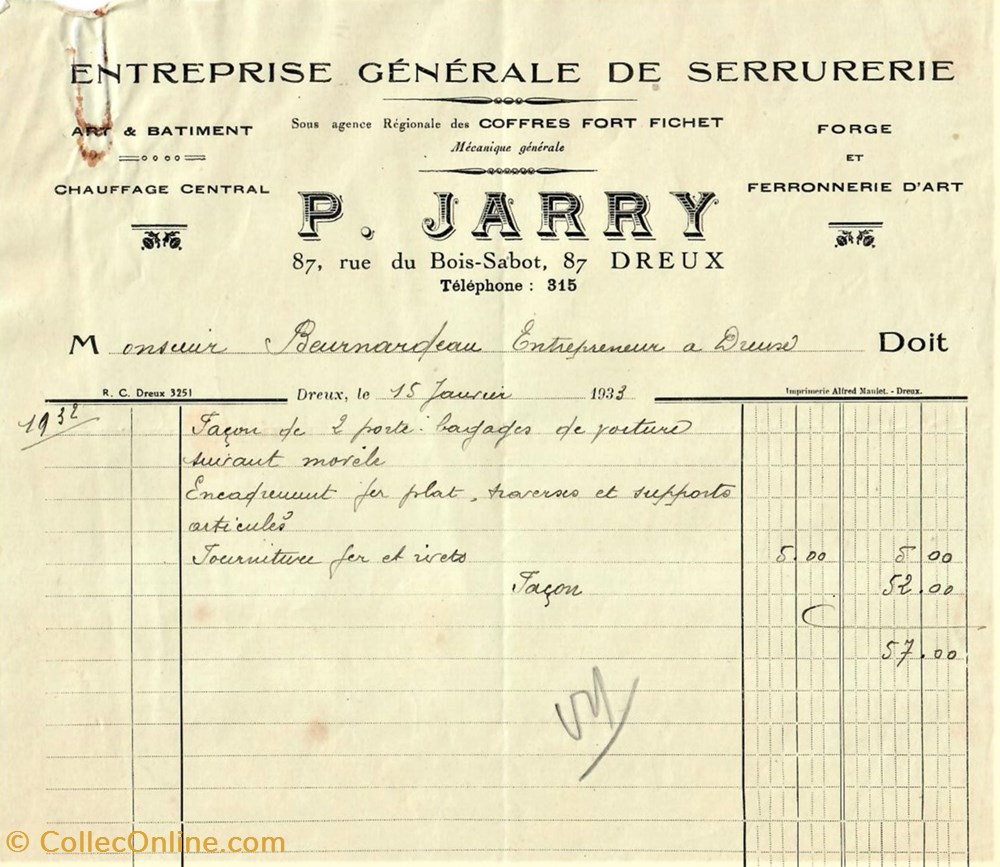 ENTREPRISE GÉNÉRALE DE SERRURERIE
ART & BATIMENT
CHAUFFAGE CENTRAL
Sous agence Régionale des COFFRES FORT FICHET
Mécanique générale
FORGE
ET
FERRONNERIE D'ART
P. JARRY
87, rue du Bois-Sabot, 87 DREUX
Téléphone : 315
Monsieur Beurnardeau Entrepreneur a Dreux Doit
R. C. Dreux 3251
Dreux, le 15 Janvier 1933
Imprimerie Alfred Maulet. - Dreux.
1932
Façon de 2 porte-bagages de voiture
suivant modèle
Encadrement fer plat, traverses et supports
articulés
Fourniture fer et rivets 5.00 5.00
Façon 52.00
57.00
© CollecOnline.com